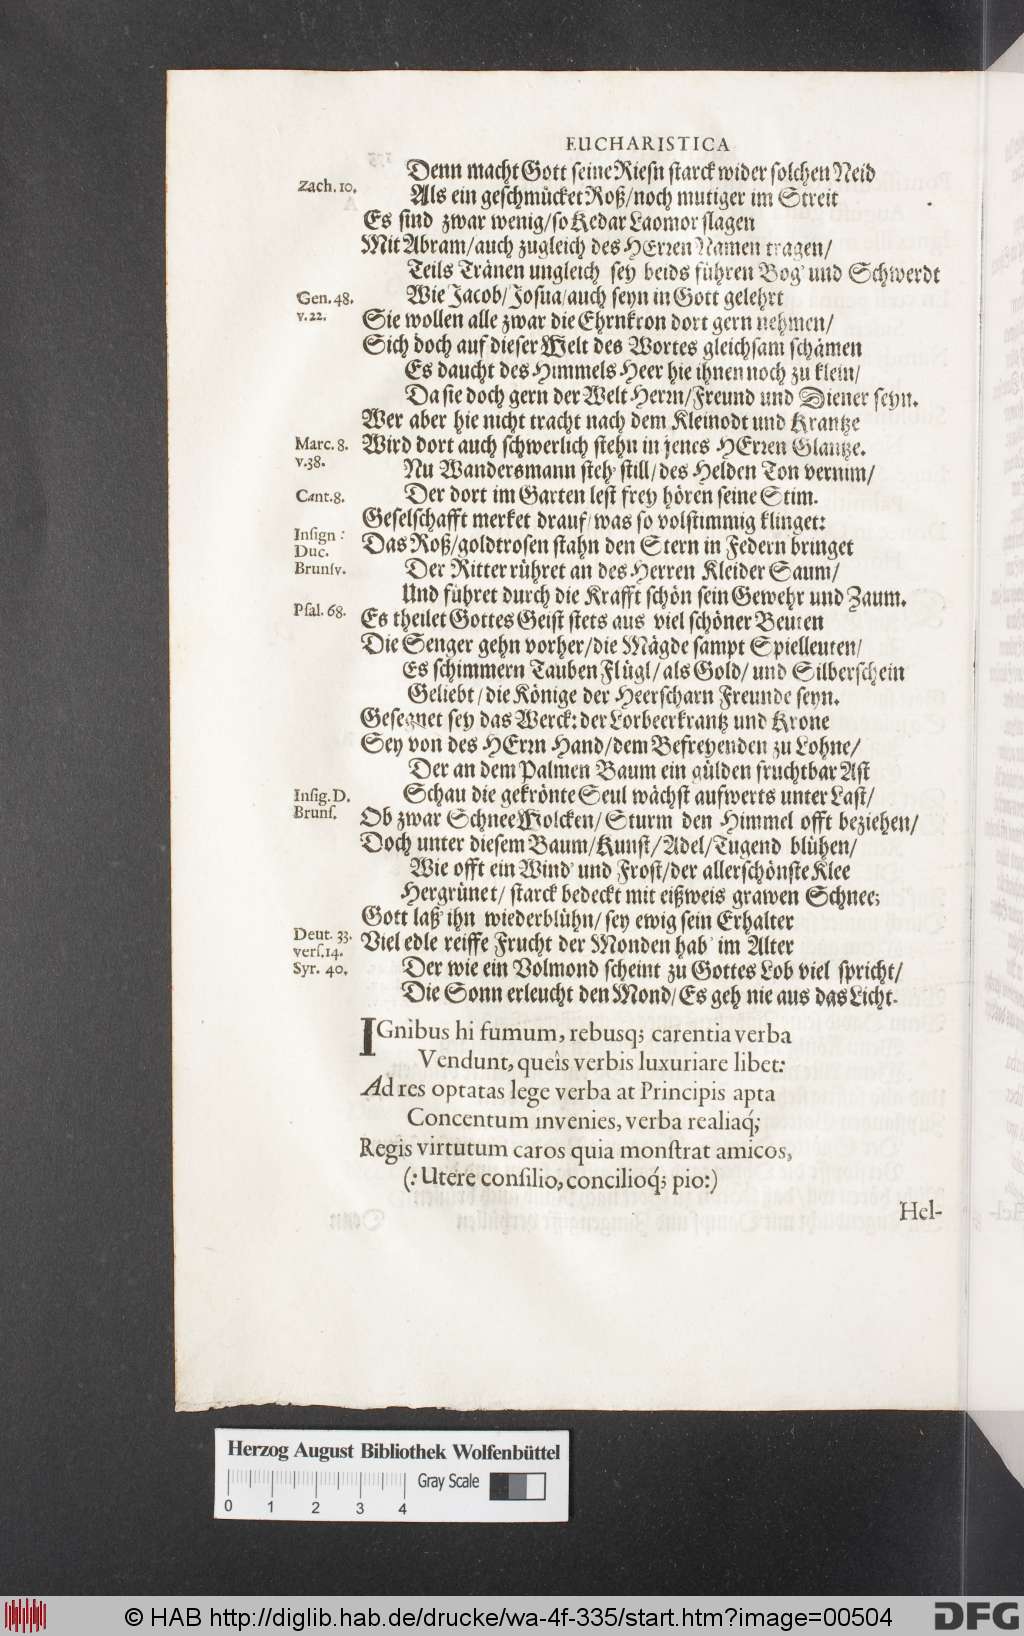 EUCHARISTICA
Denn macht Gott seine Riesn starck wider solchen Neid
Zach. 10. Als ein geschmücket Roß/noch mutiger im Streit
Es sind zwar wenig/so Kedar Laomor slagen
Mit Abram/auch zugleich des HErren Namen tragen/
Teils Tränen ungleich sey beids führen Bog' und Schwerdt
Gen. 48. Wie Jacob/Josua/auch seyn in Gott gelehrt
v. 22. Sie wollen alle zwar die Ehrnkron dort gern nehmen/
Sich doch auf dieser Welt des Wortes gleichsam schämen
Es daucht des Himmels Heer hie ihnen noch zu klein/
Da sie doch gern der Welt Herrn/Freund und Diener seyn.
Wer aber hie nicht tracht nach dem Kleinodt und Krantze
Marc. 8. Wird dort auch schwerlich stehn in jenes HErren Glantze.
v.38. Nu Wandersmann steh' still/des Helden Ton vernim/
Cant. 8. Der dort im Garten lest frey hören seine Stim.
Geselschafft merket drauf/was so volstimmig klinget:
Insign: Duc. Das Roß/goldtrosen stahn den Stern in Federn bringet
Brunsv. Der Ritter rühret an des Herren Kleider Saum/
Und führet durch die Krafft schön sein Gewehr und Zaum.
Psal. 68. Es theilet Gottes Geist stets aus viel schöner Beuten
Die Senger gehn vorher/die Mägde sampt Spielleuten/
Es schimmern Tauben Flügl/als Gold/und Silberschein
Geliebt/die Könige der Heerscharn Freunde seyn.
Gesegnet sey das Werck: der Lorbeerkrantz und Krone
Sey von des HErrn Hand/dem Befreyenden zu Lohne/
Der an dem Palmen Baum ein gülden fruchtbar Ast
Insig. D. Schau die gekrönte Seul wächst aufwerts unter Last/
Bruns. Ob zwar Schnee Wolcken/Sturm den Himmel offt beziehen/
Doch unter diesem Baum/Kunst/Adel/Tugend blühen/
Wie offt ein Wind' und Frost/der allerschönste Klee
Hergrünet/starck bedeckt mit eißweis grawen Schnee;
Gott laß' ihn wiederblühn/sey ewig sein Erhalter
Deut. 33. vers.14. Viel edle reiffe Frucht der Monden hab' im Alter
Syr. 40. Der wie ein Volmond scheint zu Gottes Lob viel spricht/
Die Sonn erleucht den Mond/Es geh nie aus das Licht.
IGnibus hi fumum, rebusq; carentia verba
Vendunt, queîs verbis luxuriare libet:
Ad res optatas lege verba at Principis apta
Concentum invenies, verba realiaq́;
Regis virtutum caros quia monstrat amicos,
(: Utere consilio, concilioq; pio:)
Hel-
Herzog August Bibliothek Wolfenbüttel
Gray Scale
0 1 2 3 4
© HAB http://diglib.hab.de/drucke/wa-4f-335/start.htm?image=00504
DFG